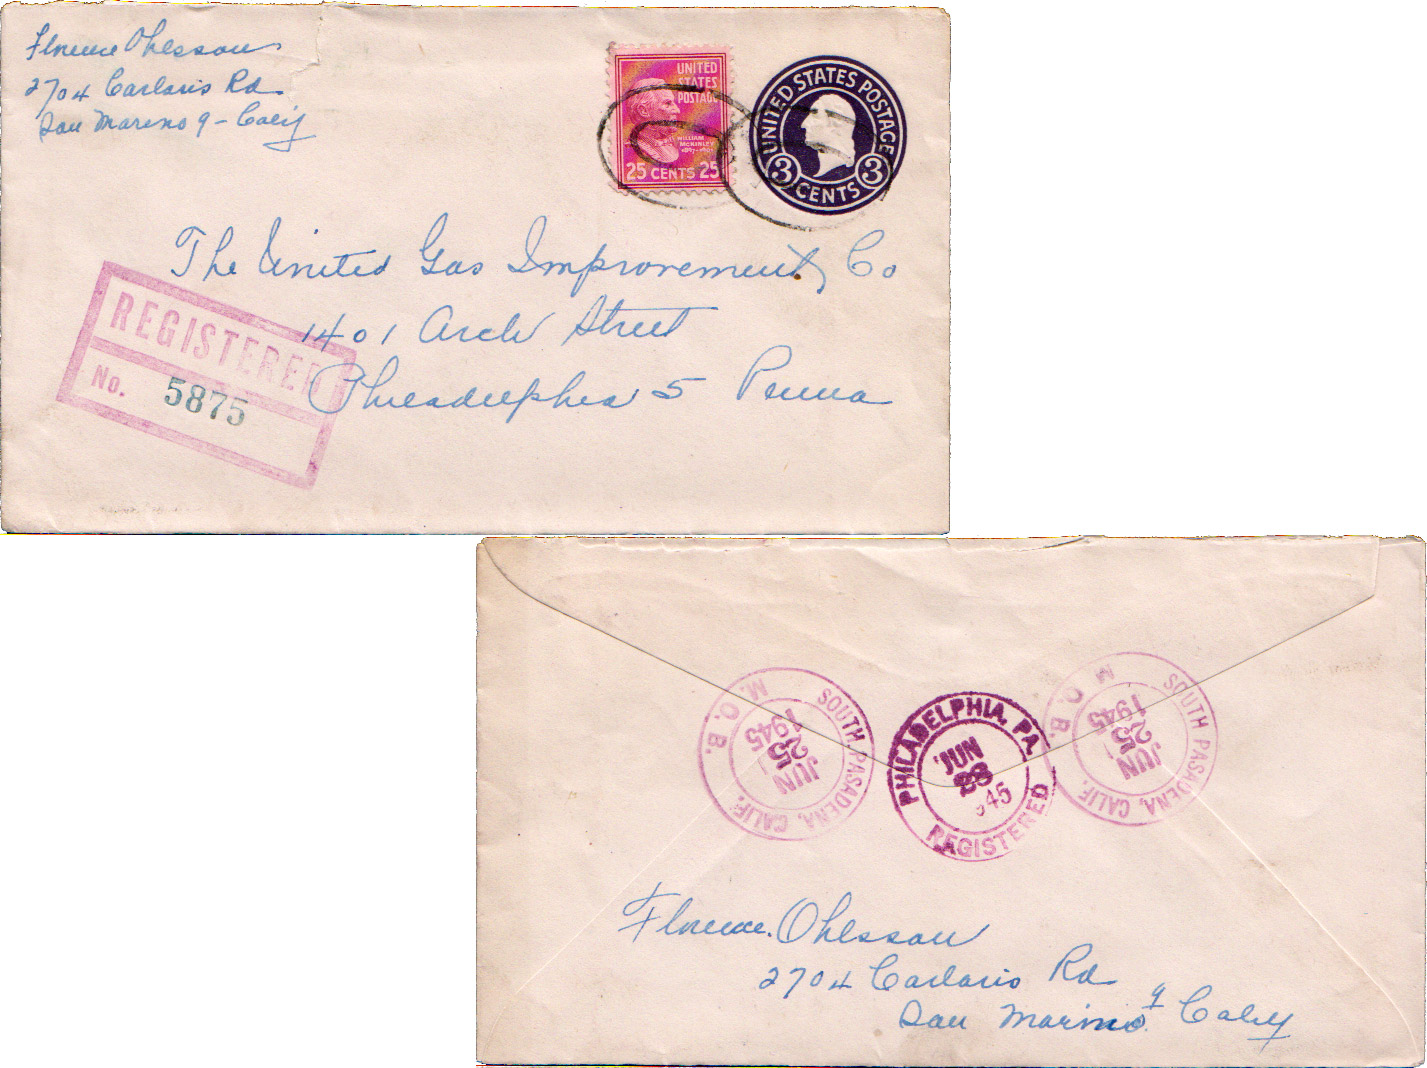 Florence Ohlsson
2704 Carlaris Rd
San Marino 9 - Calif
UNITED
STATES
POSTAGE
WILLIAM
McKINLEY
1897-1901
25 CENTS 25
UNITED STATES POSTAGE
3 CENTS 3
The United Gas Improvement Co
1401 Arch Street
Philadelphia 5 Penna
REGISTERED
No. 5875
SOUTH PASADENA, CALIF.
M.O.B.
JUN
25
1945
PHILADELPHIA, PA.
JUN
28
945
REGISTERED
SOUTH PASADENA, CALIF.
M.O.B.
JUN
25
1945
Florence Ohlsson
2704 Carlaris Rd
San Marino 9 Calif